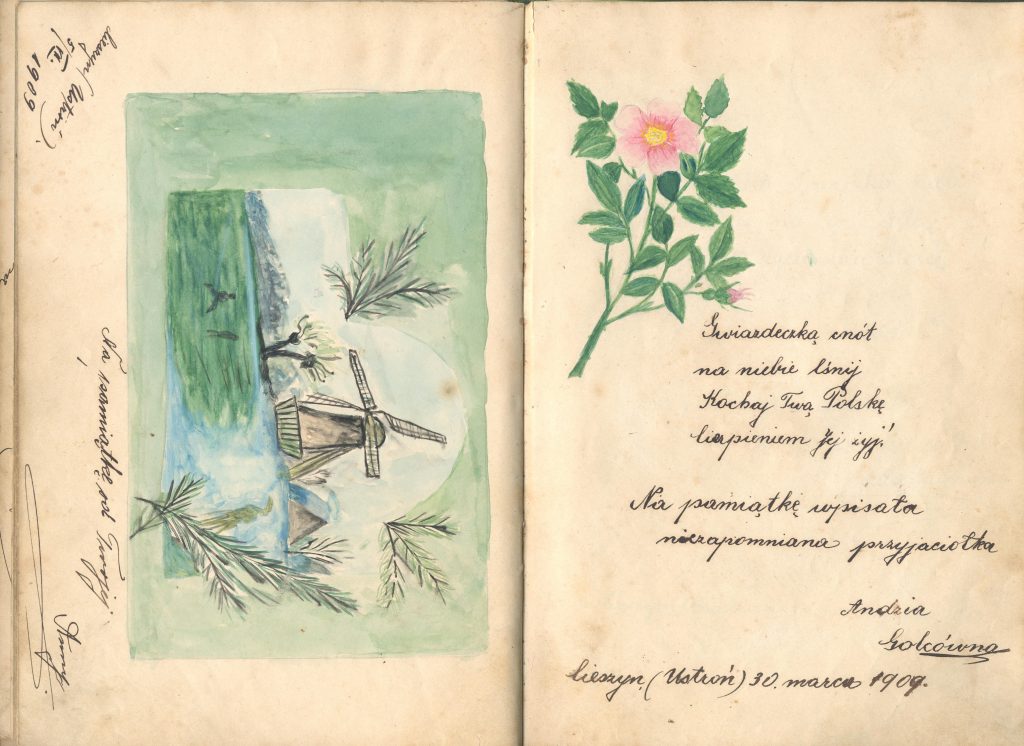 Cieszyn (Ustroń)
1909
Na pamiątkę od Twojej
Gwiazdeczką cnót
na niebie lśnij
Kochaj Twą Polskę
Cierpieniem Jej żyj!
Na pamiątkę wpisała
niezapomniana przyjaciółka
Andzia
Golcówna
Cieszyn, (Ustroń) 30. marca 1909.